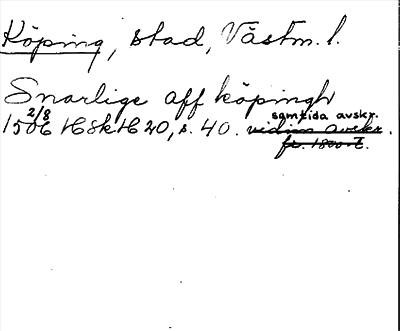 Köping, stad, Västm. l.
Snarlige aff köpingh
2/8 samtida avskr.
1506 HSkH 20, s. 40. vidim avskr.
fr. 1800-t.